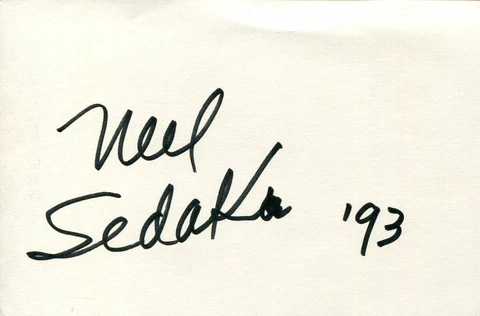 Neil
Sedaka '93